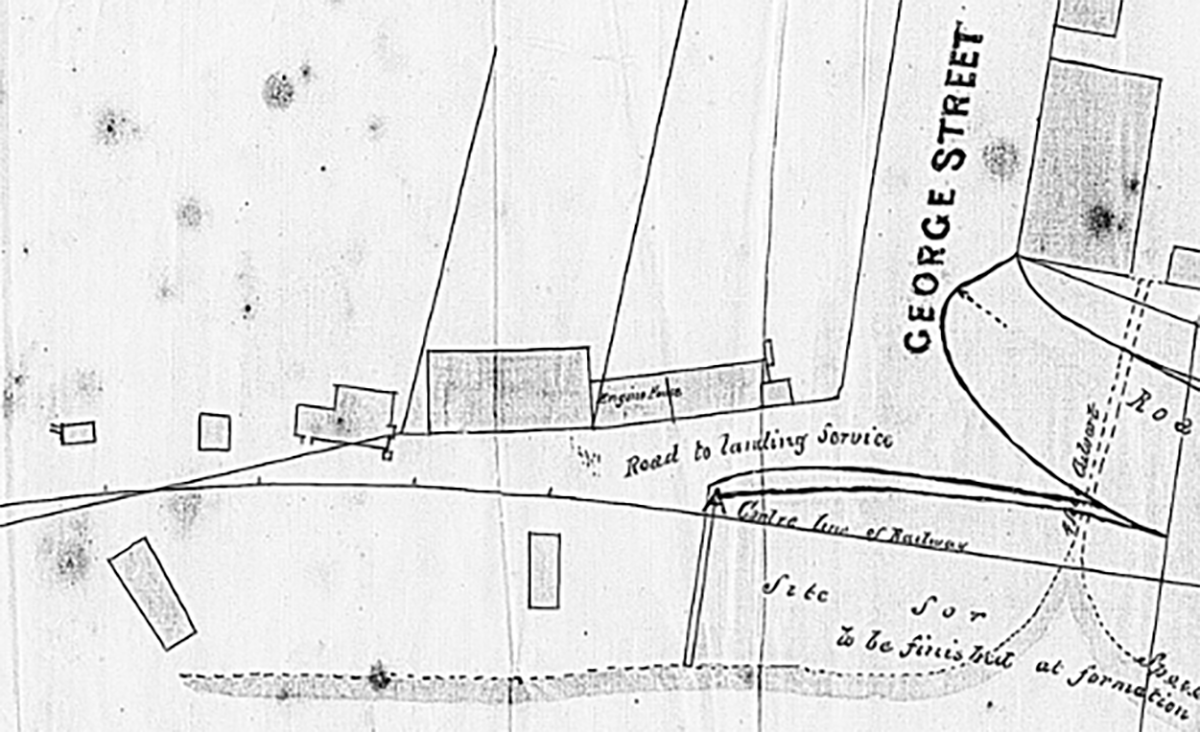 GEORGE STREET
Engine House
Road to landing Service
Centre line of Railway
Site for
to be finished at formation
Roa